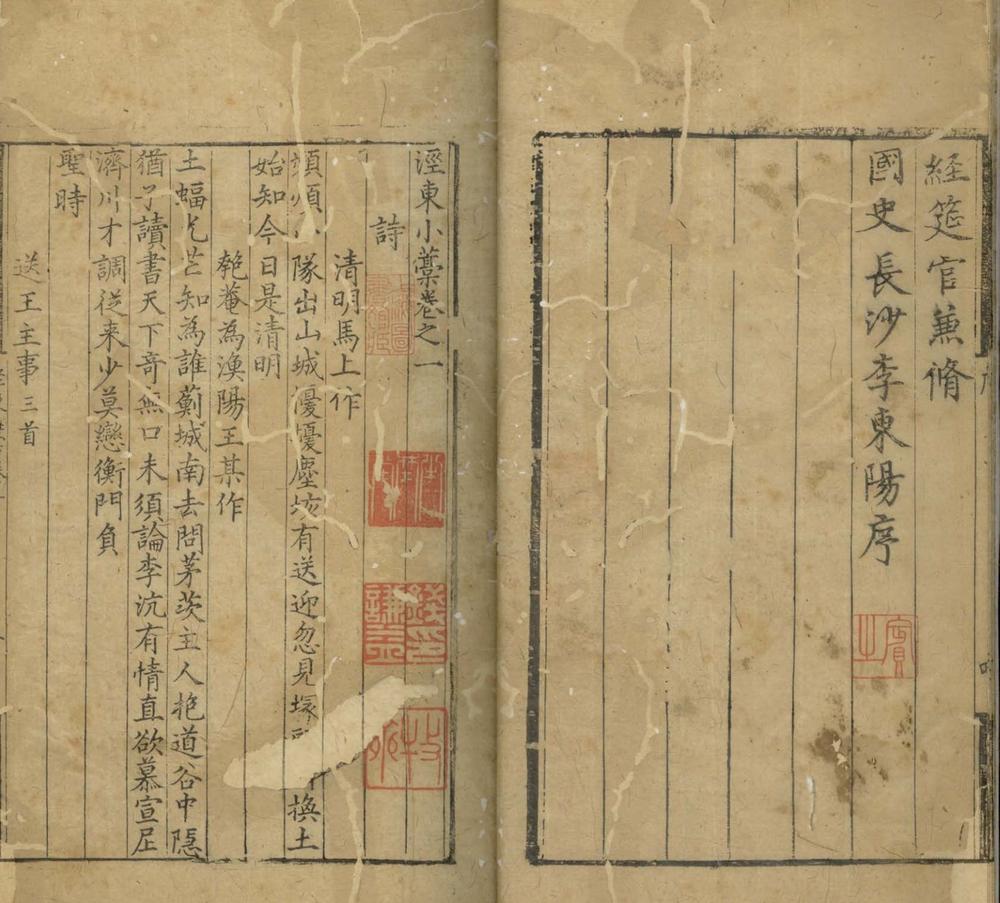 経筵官兼脩
國史長沙李東陽序
涇東小藁卷之一
詩
清明馬上作
隊出山城擾擾塵埃有送迎忽見塚 換土
始知今日是清明
菴為漁陽王某作
土蝠 芒知為誰薊城南去問茅茨主人抱道谷中隱
猶子讀書天下奇無口未須論李沆有情直欲慕宣尼
濟川才調從来少莫戀衡門負
聖時
送王主事三首
錢謙
牧
賓之